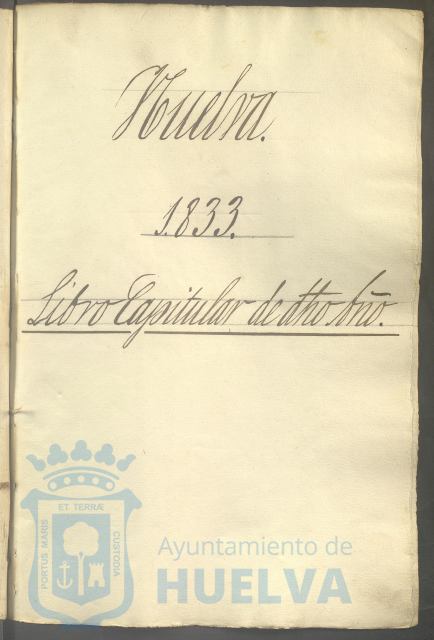 Huelva.
1.833.
Libro Capitular de dho año.
PORTUS MARIS
ET TERRÆ
CUSTODIA
Ayuntamiento de
HUELVA